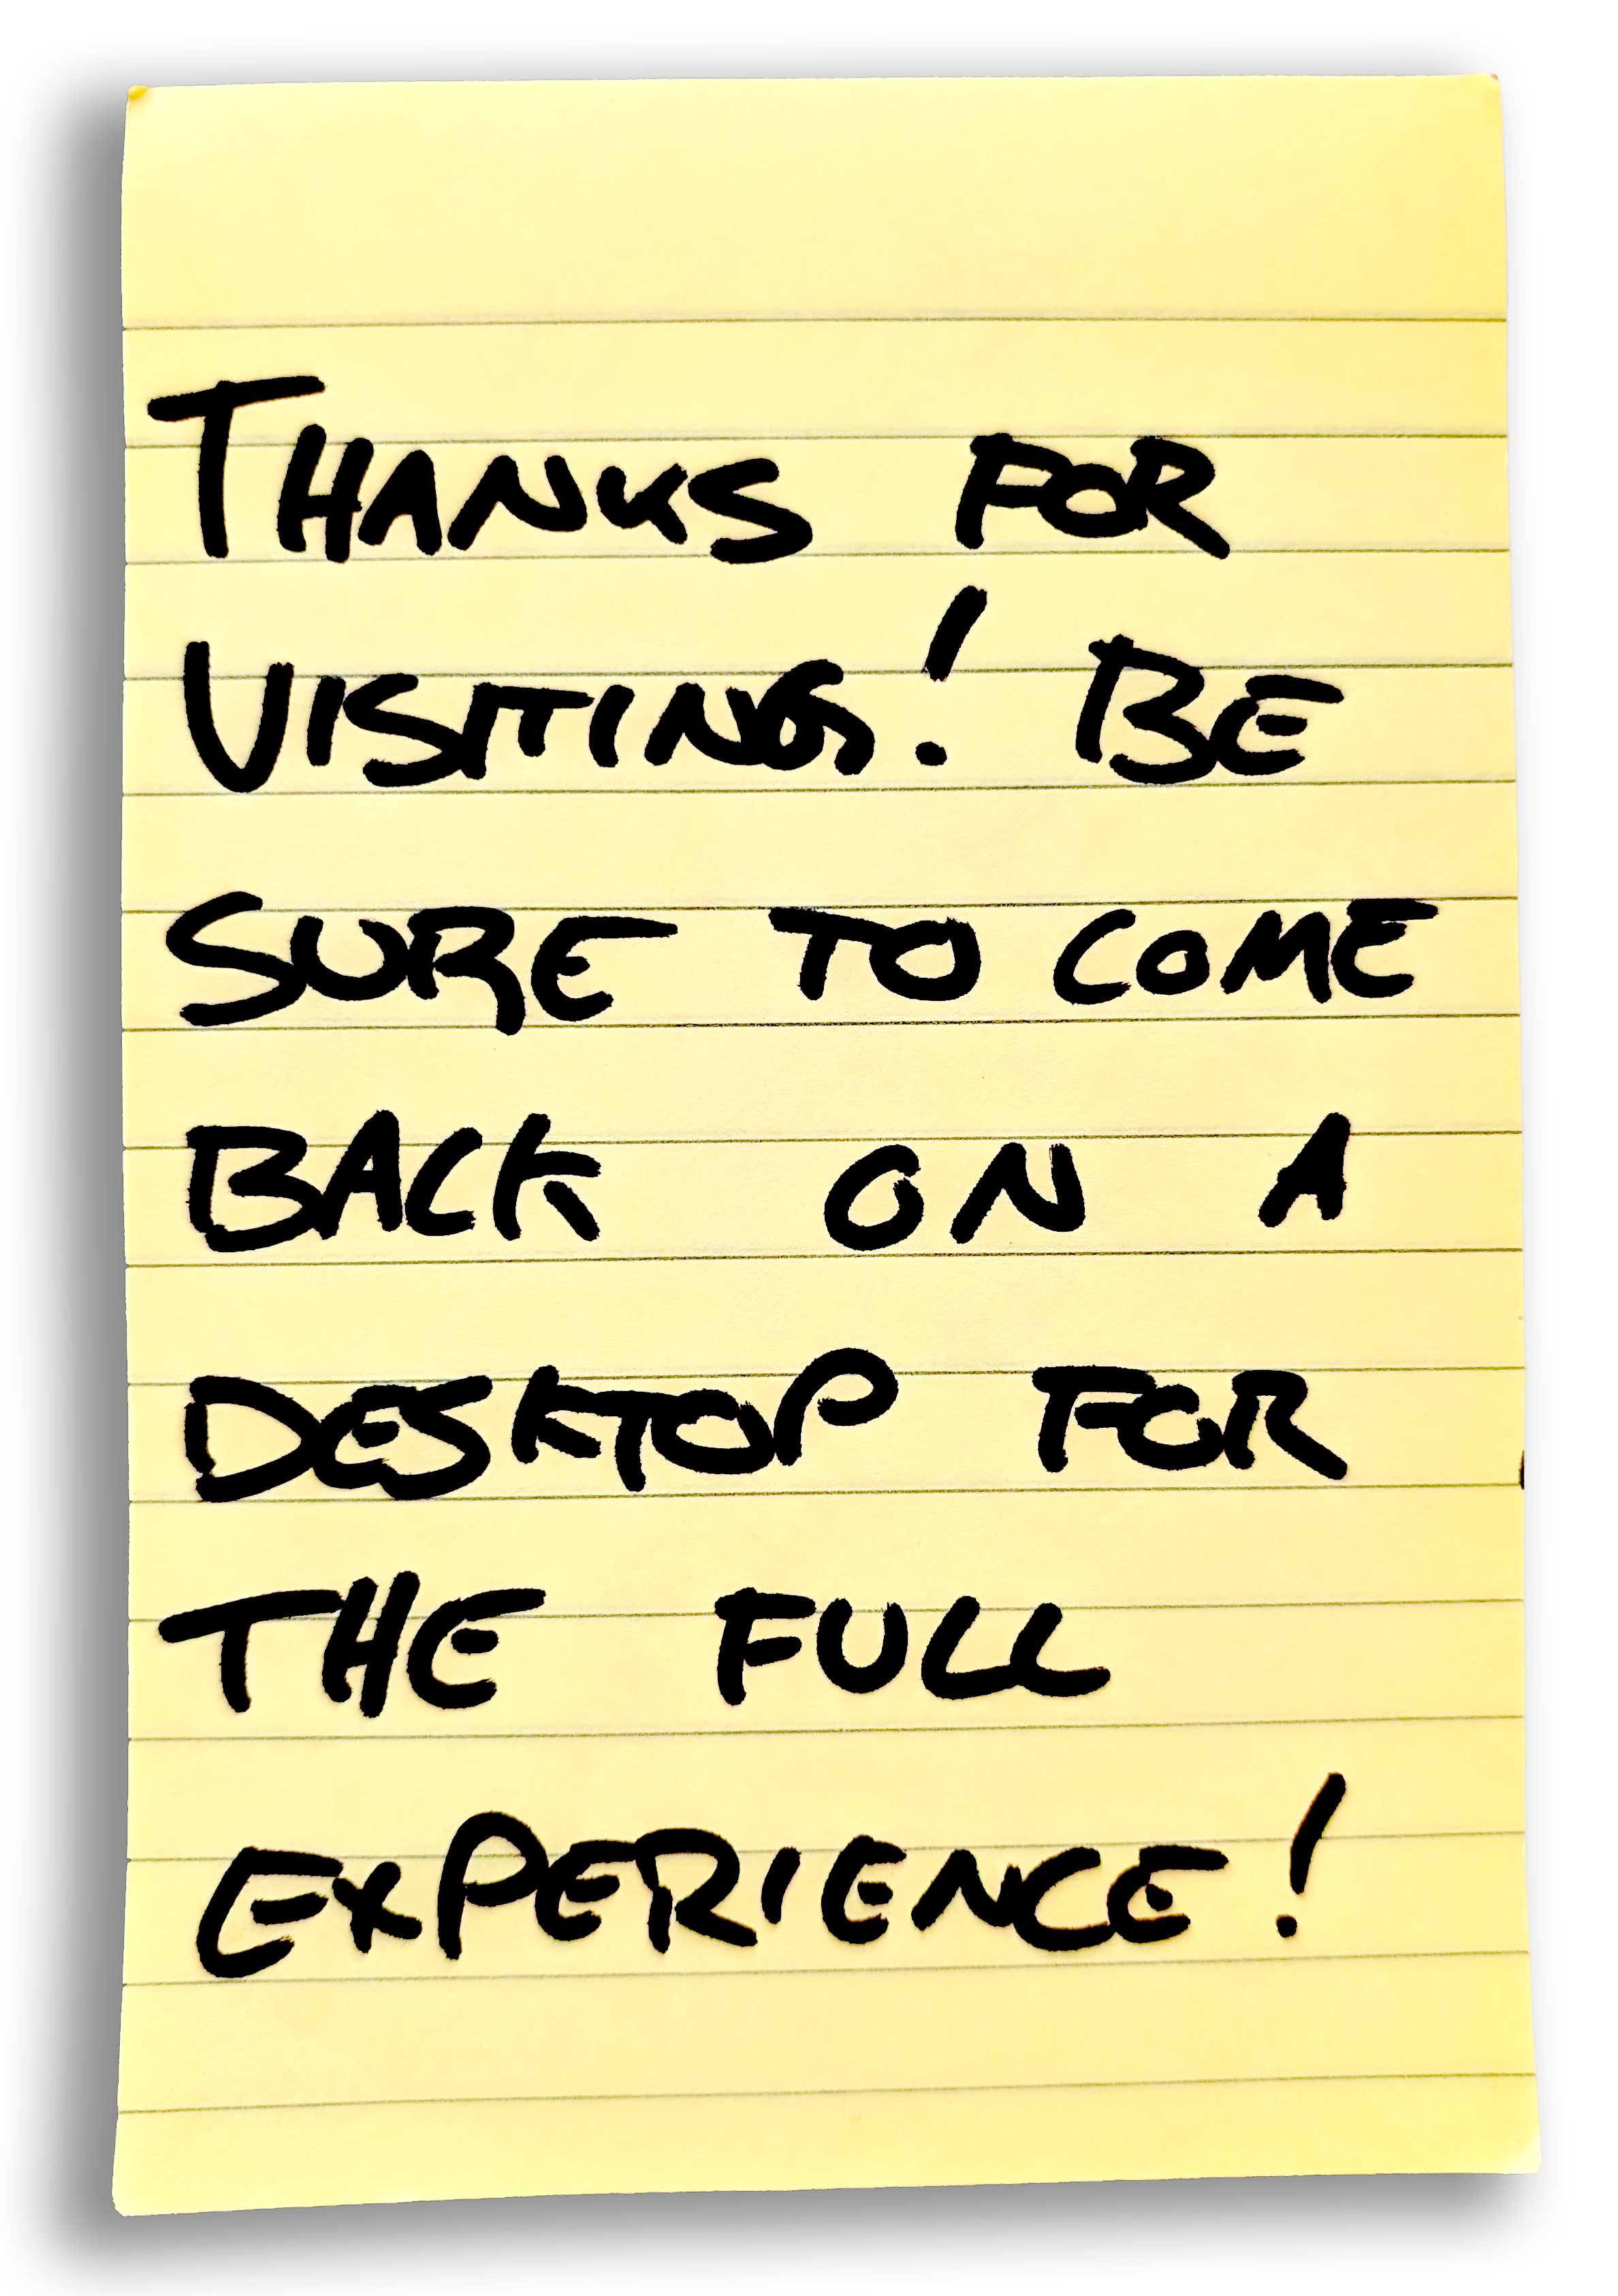 THANKS FOR
VISITING! BE
SURE TO COME
BACK ON A
DESKTOP FOR
THE FULL
EXPERIENCE!